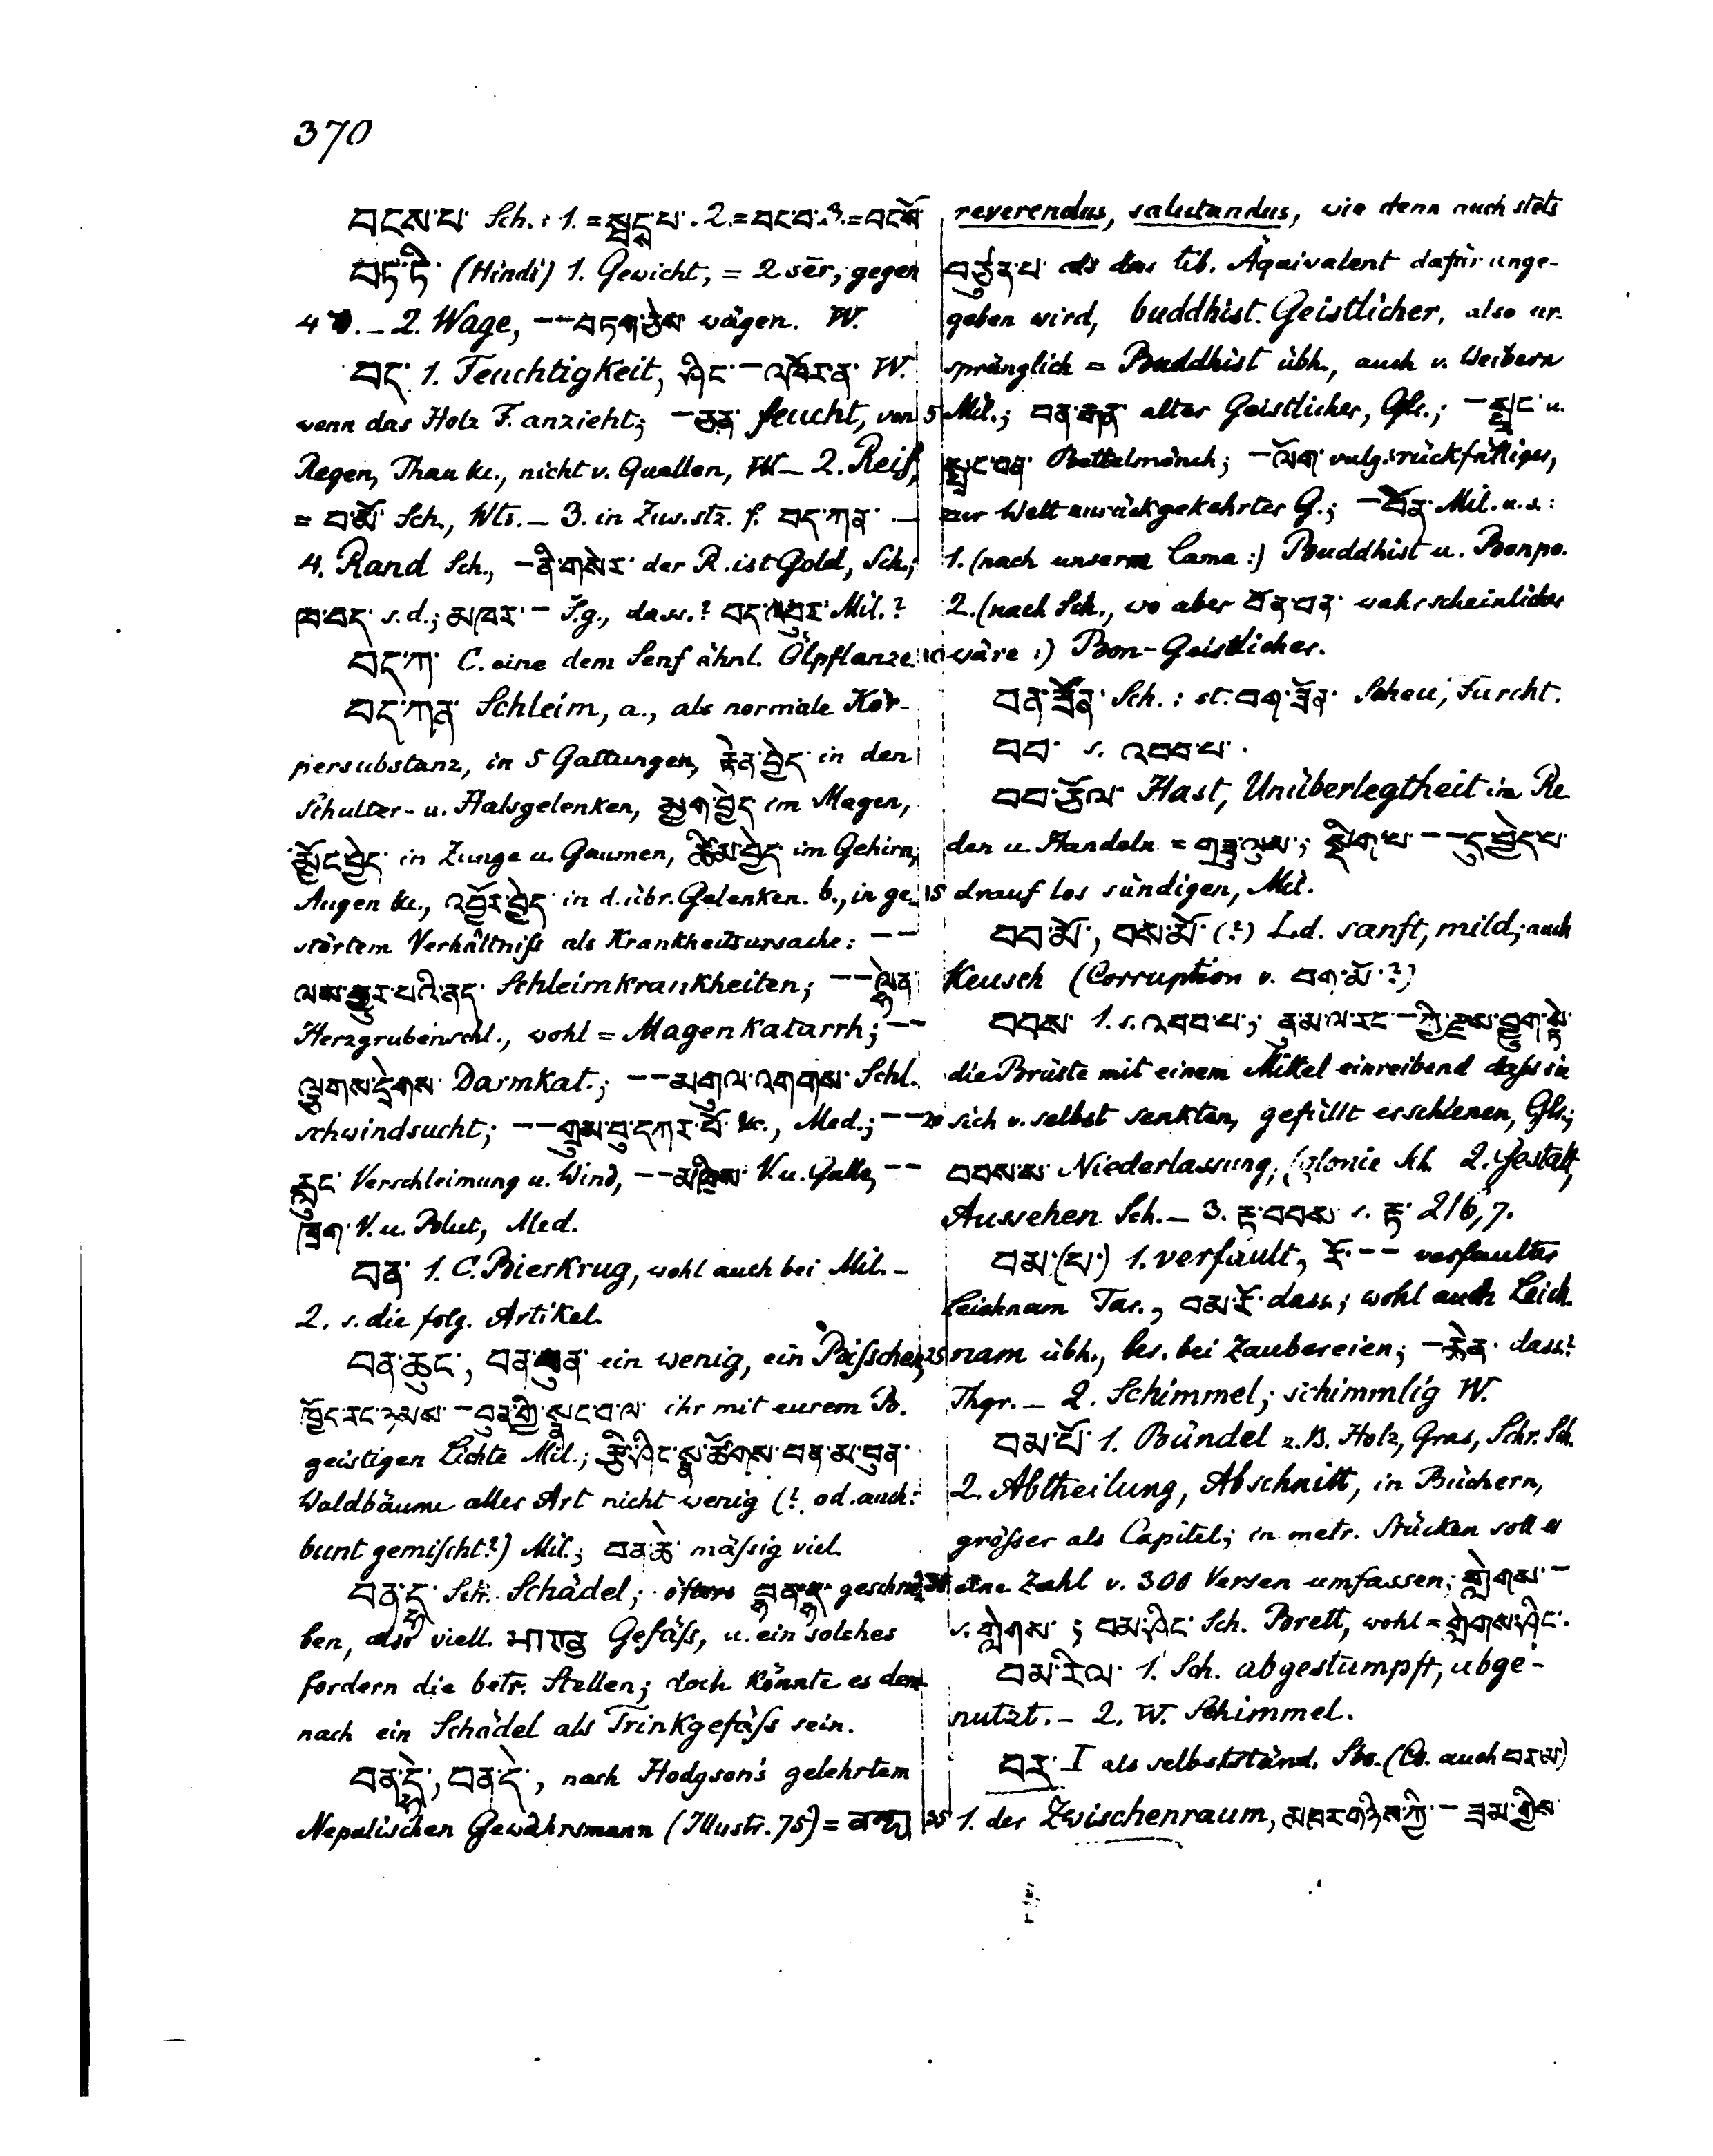 370
བངས་པ་ Sch.: 1. = སྦང་པ་. 2. = བང་བ་ 3. =
(Hindi) 1. Gewicht, = 2 sēr, gegen
4 . – 2. Wage, –– བཏག་ཅེས་ wägen. W.
བད་ 1. Feuchtigkeit, ཤིང་ – W.
wenn das Holz F. anzieht; – ཅན་ feucht, von
Regen, Thau &c., nicht v. Quellen, W – 2. Reif,
= བ་མོ་ Sch., Wts. – 3. in Zus.stz. f. བད་ཀན་ . –
4. Rand Sch., – ནི་གསེར་ der R. ist Gold, Sch.;
ཁ་བད་ s.d.; མཁར་ – S.g., dass.? Mil.?
བད་ཀ་ C. eine dem Senf ähnl. Ölpflanze
བད་ཀན་ Schleim, a., als normale Kör-
persubstanz, in 5 Gattungen, རྟེན་བྱེད་ in den
Schulter- u. Halsgelenken, མྱག་བྱེད་ im Magen,
མྱོང་བྱེད་ in Zunge u. Gaumen, ཚིམ་བྱེད་ im Gehirn,
Augen &c., འབྱོར་བྱེད་ in d. übr. Gelenken. b., in ge-
störtem Verhältniß als Krankheitsursache: ––
ལས་གྱུར་པའི་ནད་ Schleimkrankheiten; ––
Herzgrubenschl., wohl = Magenkatarrh; ––
ལྕགས་དྲེགས་ Darmkat.; –– མགུལ་འགགས་ Schl.
schwindsucht; –– གྲུམ་བུ་དཀར་པོ་ &c., Med.; ––
རླུང་ Verschleimung u. Wind, –– མཁྲིས་ V. u. Galle, ––
ཁྲག་ V. u. Blut, Med.
བན་ 1. C. Bierkrug, wohl auch bei Mil. –
2. s. die folg. Artikel.
བན་ཆུང་, བན་བུན་ ein wenig, ein Bißchen,
ཁྱོད་རང་ཉམས་ – བུན་གྱི་སྣང་བ་ལ་ ihr mit eurem B.
geistigen Lichte Mil.; རྩི་ཤིང་སྣ་ཚོགས་བན་མ་བུན་
Waldbäume aller Art nicht wenig (? od. auch:
bunt gemischt?) Mil.; བན་ཆེ་ mäßig viel.
བན་དྷ་ Sch. Schädel; öfters བྷན་དྷ་ geschrie-
ben, also viell. भाण्ड Gefäß, u. ein solches
fordern die betr. Stellen; doch könnte es dem-
nach ein Schädel als Trinkgefäß sein.
བན་དྷེ་, བན་དེ་, nach Hodgson's gelehrtem
Nepalischen Gewährsmann (Illustr. 75) = वन्द्य
reverendus, salutandus, wie denn auch stets
བཙུན་པ་ als das tib. Äquivalent dafür ange-
geben wird, buddhist. Geistlicher, also ur-
sprünglich = Buddhist übh., auch v. Weibern
5 Mil.; བན་རྒན་ alter Geistlicher, Glr.; – སྤྲང་ u.
སྤྲང་བན་ Bettelmönch; – ལོག་ vulg. rückfälliger,
zur Welt zurückgekehrter G.; – བོན་ Mil. u. a.:
1. (nach unserm Lama:) Buddhist u. Bonpo.
2. (nach Sch., wo aber བོན་བན་ wahrscheinlicher
10 wäre:) Bon-Geistlicher.
བན་ཟོན་ Sch.: st. བག་ཟོན་ Scheu, Furcht.
བབ་ s. འབབ་པ་.
བབ་ཅོལ་ Hast, Unüberlegtheit in Re-
den u. Handeln = གཟུ་ལུམ་; སྡིག་པ་ –– དུ་བྱེད་པ་
15 drauf los sündigen, Mil.
བབ་མོ་, བམ་མོ་ (?) Ld. sanft, mild; nach
Keusch (Corruption v. བག་མོ་?)
བབས་ 1. s. འབབ་པ་; ནུ་མ་ལ་རང་ – ཀྱི་རྫས་བྱུག་སྟེ་
die Brüste mit einem Mittel einreibend daß sie
20 sich v. selbst senkten, gefüllt erschienen, Glr.;
བབས་ས་ Niederlassung, Colonie Sch. 2. Gestalt,
Aussehen Sch. – 3. རྟ་བབས་ s. རྟ་ 216, 7.
བམ་(པ་) 1. verfault, རོ་ –– verfaulter
Leichnam Tar., བམ་རོ་ dass.; wohl auch Leich-
25 nam übh., bes. bei Zaubereien; – རྟེན་ dass.?
Thgr. – 2. Schimmel; schimmlig W.
བམ་པོ་ 1. Bündel z.B. Holz, Gras, Schr. Sch.
2. Abtheilung, Abschnitt, in Büchern,
größer als Capitel; in metr. Stücken soll es
30 eine Zahl v. 300 Versen umfassen; གླེགས་ –
s. གླེགས་; བམ་ཤིང་ Sch. Brett, wohl = གླེགས་ཤིང་.
བམ་རིལ་ 1. Sch. abgestumpft, abge-
nutzt. – 2. W. Schimmel.
བར་ I als selbstständ. Sbs. (Cs. auch བར་མ་)
35 1. der Zwischenraum, མཁར་གཉིས་ཀྱི་ – ཟམ་གྱིས་